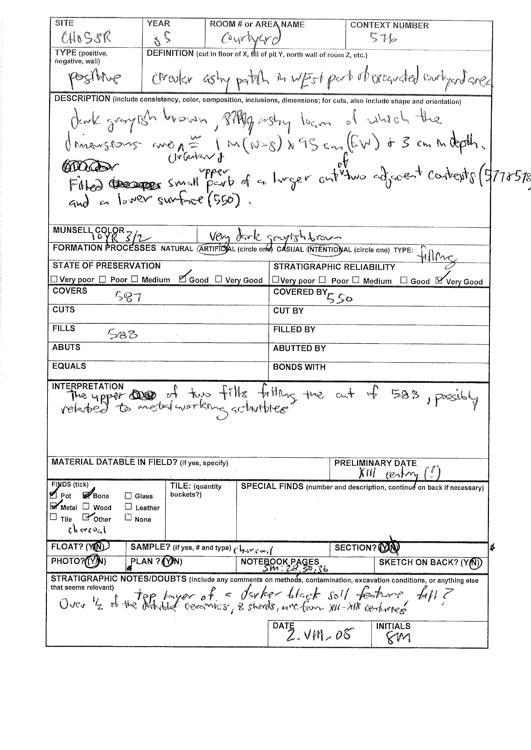 SITE YEAR ROOM # or AREA NAME CONTEXT NUMBER
CHOSSR 05 Courtyard 576
TYPE (positive, negative, wall) DEFINITION (cut in floor of X, fill of pit Y, north wall of room Z, etc.)
positive circular ashy patch in West part of excavated courtyard area
DESCRIPTION (include consistency, color, composition, inclusions, dimensions; for cuts, also include shape and orientation)
dark grayish brown, silty ashy loam of which the
dimensions are 1 m (N-S) x 95 cm (EW) & 3 cm in depth.
Circular
Filled small upper part of a larger cut of two adjacent contexts (577 & 578)
and a lower surface (550).
MUNSELL COLOR
10YR 3/2 very dark grayish brown
FORMATION PROCESSES NATURAL ARTIFICIAL (circle one) CASUAL INTENTIONAL (circle one) TYPE: filling
STATE OF PRESERVATION STRATIGRAPHIC RELIABILITY
Very poor Poor Medium Good Very Good Very poor Poor Medium Good Very Good
COVERS 587 COVERED BY 550
CUTS CUT BY
FILLS 583 FILLED BY
ABUTS ABUTTED BY
EQUALS BONDS WITH
INTERPRETATION
The upper of two fills filling the cut of 583, possibly
related to metalworking activities
MATERIAL DATABLE IN FIELD? (if yes, specify) PRELIMINARY DATE
XIII century (?)
FINDS (tick) TILE: (quantity buckets?) SPECIAL FINDS (number and description, continue on back if necessary)
Pot Bone Glass
Metal Wood Leather
Tile Other None
charcoal
FLOAT? (Y/N) SAMPLE? (if yes, # and type) charcoal SECTION? (Y/N)
PHOTO? (Y/N) PLAN ? (Y/N) NOTEBOOK PAGES SKETCH ON BACK? (Y/N)
SM: 28, 30, 36
STRATIGRAPHIC NOTES/DOUBTS (Include any comments on methods, contamination, excavation conditions, or anything else
that seems relevant)
top layer of a darker black soil feature fill?
Over 1/2 of the datable ceramics, 8 sherds, are from XII-XIII centuries
DATE INITIALS
2.VIII.05 SM